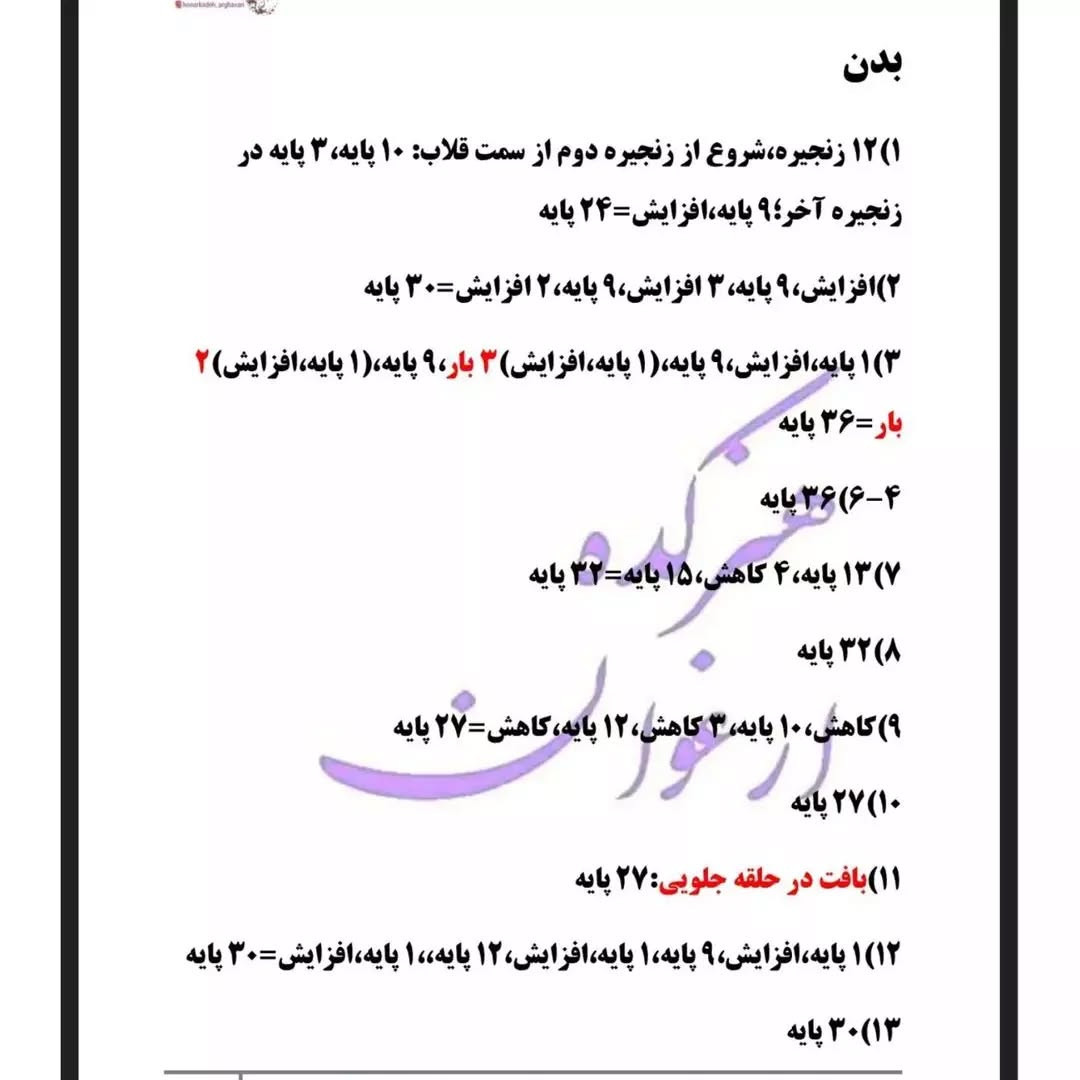 honarkadeh_arghavan
بدن
۱)۱۲ زنجیره،شروع از زنجیره دوم از سمت قلاب: ۱۰ پایه،۳ پایه در
زنجیره آخر؛۹ پایه،افزایش=۲۴ پایه
۲)افزایش،۹ پایه،۳ افزایش،۹ پایه،۲ افزایش=۳۰ پایه
۳)۱ پایه،افزایش،۹ پایه،(۱ پایه،افزایش)۳ بار،۹ پایه،(۱ پایه،افزایش)۲
بار=۳۶ پایه
۴-۶)۳۶ پایه
۷)۱۳ پایه،۴ کاهش،۱۵ پایه=۳۲ پایه
۸)۳۲ پایه
۹)کاهش،۱۰ پایه،۳ کاهش،۱۲ پایه،کاهش=۲۷ پایه
۱۰)۲۷ پایه
۱۱)بافت در حلقه جلویی:۲۷ پایه
۱۲)۱ پایه،افزایش،۹ پایه،۱ پایه،افزایش،۱۲ پایه،،۱ پایه،افزایش=۳۰ پایه
۱۳)۳۰ پایه
هنرکده
ارغوان